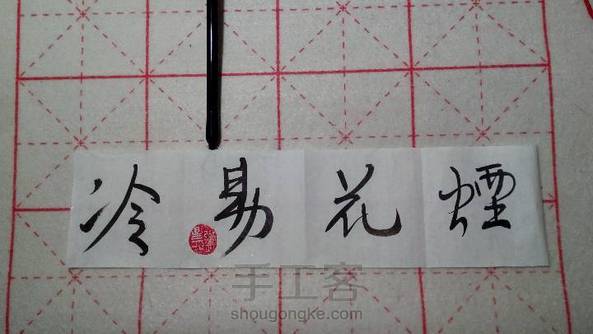 煙花易冷
手工客
shougongke.com